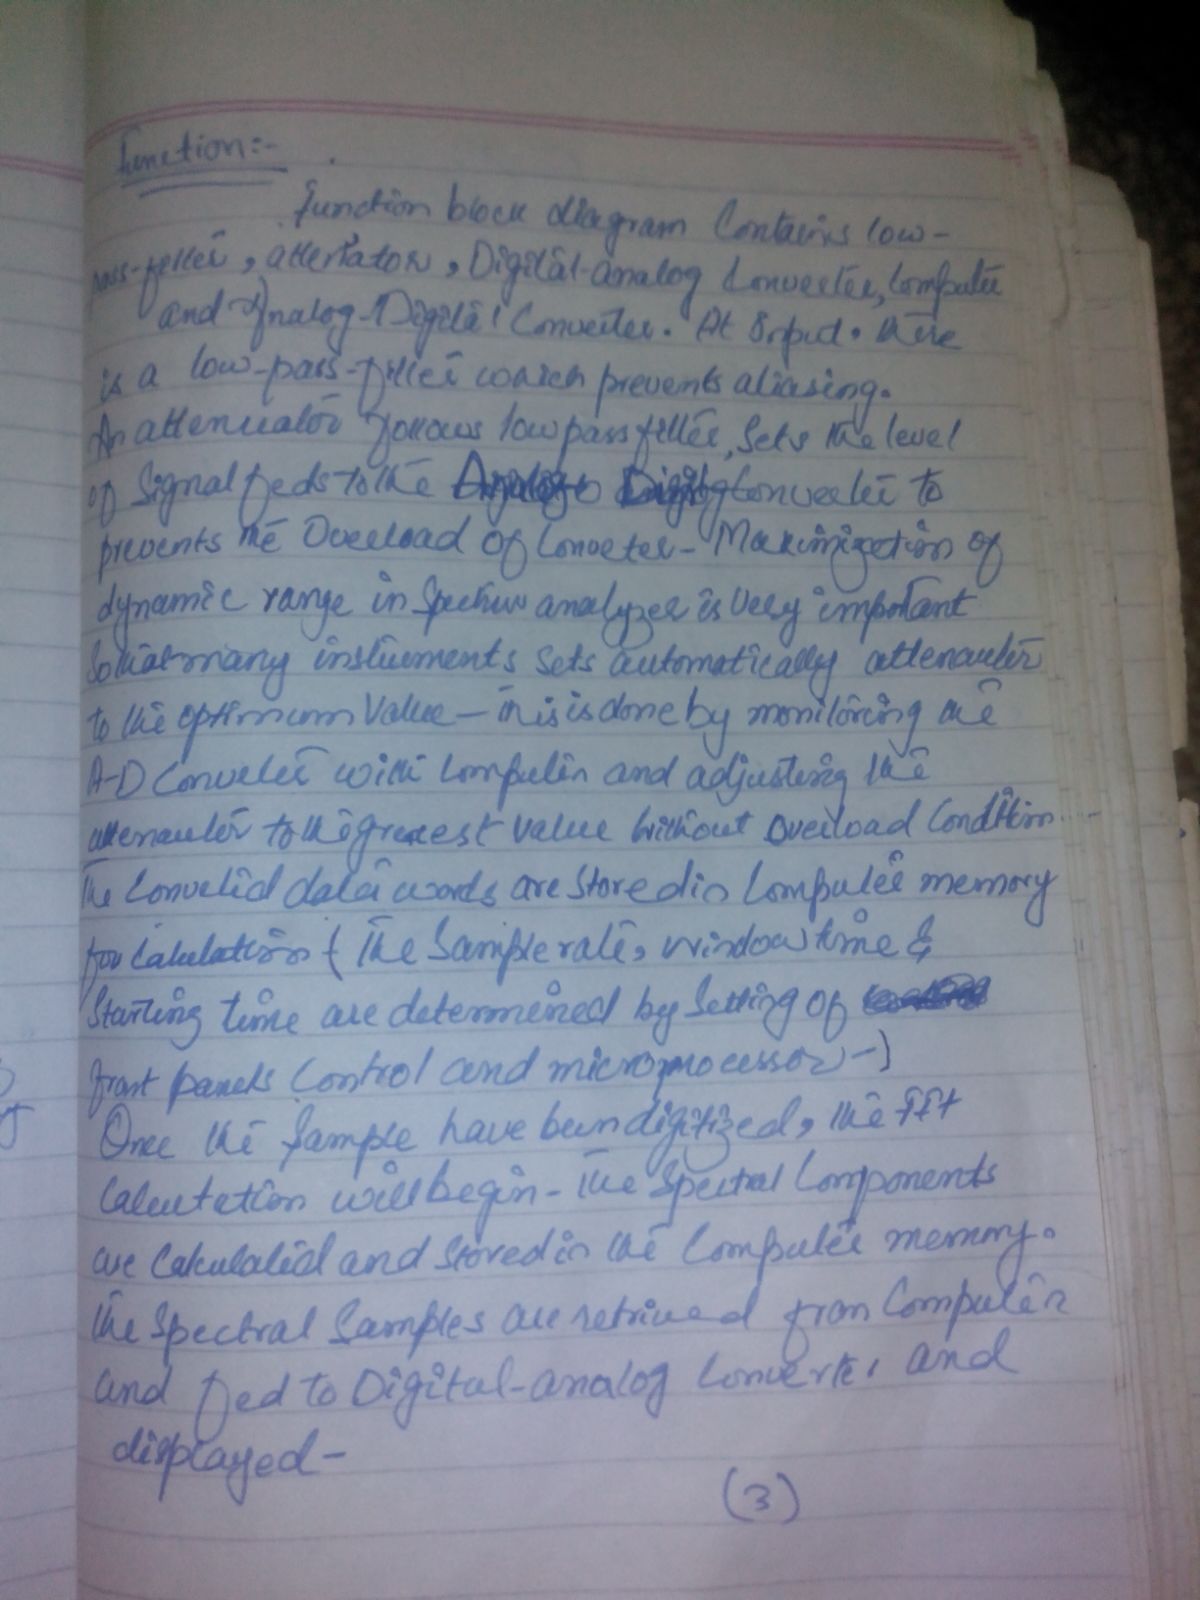 Function:-
Function block diagram Contains low-
pass-filter, attentator, Digital-analog Converter, Computer
and Analog-Digital Converter. At Input. there
is a low-pass-filter which prevents aliasing.
An attenuator follows low pass filter, Sets the level
of Signal feds to the Converter to
prevents the Overload of Conveter- Maximization of
dynamic range in Spectrum analyzer is Very important
So that many instruments Sets automatically attenauter
to the optimum Value- this is done by monitoring the
A-D Converter with Computer and adjusting the
attenauter to the greatest value without Overload Condition-
The Converted data words are Stored in Computer memory
for Calculation (The Sample rate, window time &
Starting time are determined by Setting of
front panels Control and microprocessor-)
Once the Sample have been digitized, the fft
Calculation will begin- The Spectral Components
are Calculated and Stored in the Computer memory.
The Spectral Samples are retrived from Computer
and fed to Digital-analog Converter and
displayed-
(3)